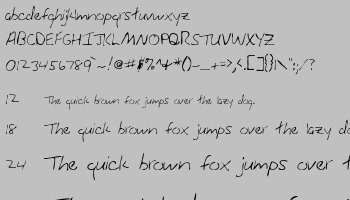 abcdefghijklmnopqrstuvwxyz
ABCDEFGHIJKLMNOPQRSTUVWXYZ
0123456789`~!@#$%^&*()-_+=>,<.[]{}|\":;/?
12 The quick brown fox jumps over the lazy dog.
18 The quick brown fox jumps over the lazy do
24 The quick brown fox jumps over